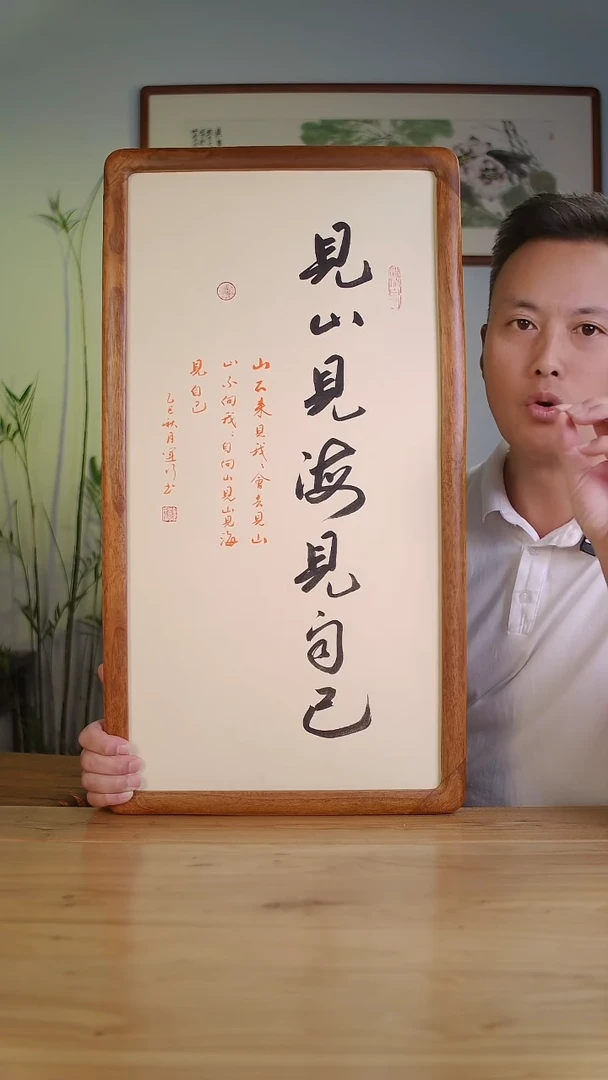 見山見海見自己
山不来見我〻會去見山
山不向我〻自向山見山見海
見自己
乙巳秋月 书